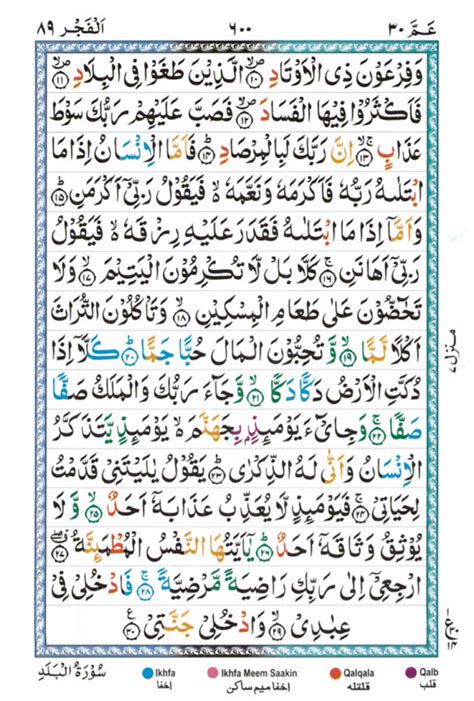 عَـمّ ٣٠
٦٠٠
اَلْفَجْر ٨٩
وَفِرْعَوْنَ ذِى الْاَوْتَادِ ۝١٠ الَّذِيْنَ طَغَوْا فِى الْبِلَادِ ۝١١
فَاَكْثَرُوْا فِيْهَا الْفَسَادَ ۝١٢ فَصَبَّ عَلَيْهِمْ رَبُّكَ سَوْطَ
عَذَابٍ ۝١٣ اِنَّ رَبَّكَ لَبِالْمِرْصَادِ ۝١٤ فَاَمَّا الْاِنْسَانُ اِذَا مَا
ابْتَلٰىهُ رَبُّهٗ فَاَكْرَمَهٗ وَنَعَّمَهٗ ۙ فَيَقُوْلُ رَبِّىْٓ اَكْرَمَنِ ۝١٥
وَاَمَّآ اِذَا مَا ابْتَلٰىهُ فَقَدَرَ عَلَيْهِ رِزْقَهٗ ۙ فَيَقُوْلُ
رَبِّىْٓ اَهَانَنِ ۝١٦ كَلَّا بَلْ لَّا تُكْرِمُوْنَ الْيَتِيْمَ ۝١٧ وَلَا
تَحٰٓضُّوْنَ عَلٰى طَعَامِ الْمِسْكِيْنِ ۝١٨ وَتَاْكُلُوْنَ التُّرَاثَ
اَكْلًا لَّمًّا ۝١٩ وَّتُحِبُّوْنَ الْمَالَ حُبًّا جَمًّا ۝٢٠ كَلَّآ اِذَا
دُكَّتِ الْاَرْضُ دَكًّا دَكًّا ۝٢١ وَّجَآءَ رَبُّكَ وَالْمَلَكُ صَفًّا
صَفًّا ۝٢٢ وَجِاىْٓءَ يَوْمَئِذٍۭ بِجَهَنَّمَ ۙ يَوْمَئِذٍ يَّتَذَكَّرُ
الْاِنْسَانُ وَاَنّٰى لَهُ الذِّكْرٰى ۝٢٣ يَقُوْلُ يٰلَيْتَنِىْ قَدَّمْتُ
لِحَيَاتِىْ ۝٢٤ فَيَوْمَئِذٍ لَّا يُعَذِّبُ عَذَابَهٗٓ اَحَدٌ ۝٢٥ وَّلَا
يُوْثِقُ وَثَاقَهٗٓ اَحَدٌ ۝٢٦ يٰٓاَيَّتُهَا النَّفْسُ الْمُطْمَئِنَّةُ ۝٢٧
ارْجِعِىْٓ اِلٰى رَبِّكِ رَاضِيَةً مَّرْضِيَّةً ۝٢٨ فَادْخُلِىْ فِىْ
عِبٰدِىْ ۝٢٩ وَادْخُلِىْ جَنَّتِىْ ۝٣٠
منزل ٧
سُوْرَةُ الْبَلَدِ
Ikhfa
اخفا
Ikhfa Meem Saakin
اخفا میم ساکن
Qalqala
قلقله
Qalb
قلب